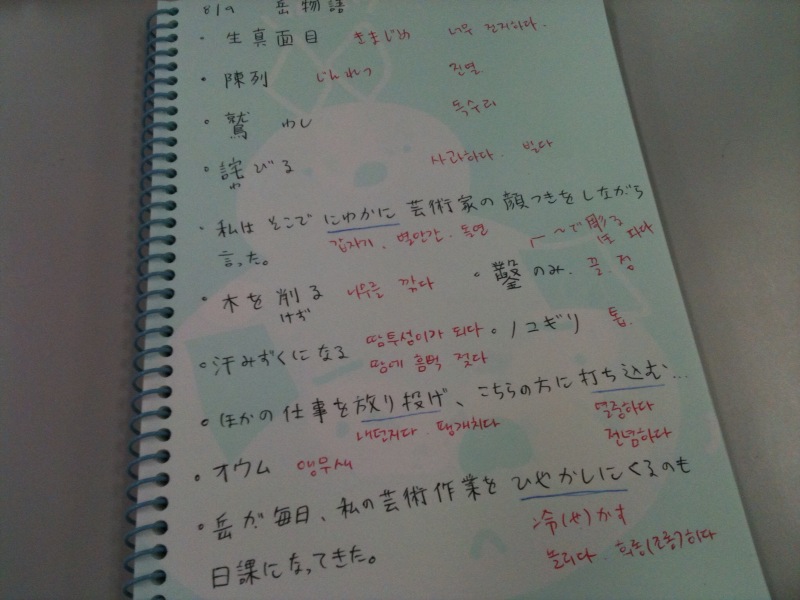 8/9 岳物語
・生真面目 きまじめ 너무 진지하다.
・陳列 じんれつ 진열
・鷲 わし 독수리
・詫びる 사과하다. 빌다
わ
・私は そこで にわかに 芸術家の顔つきをしながら
갑자기, 별안간. 돌연
言った。
～で彫る 파다
ほ
・木を削る 나무를 깎다 ・鑿 のみ. 끌. 정
けず
・汗みずくになる 땀투성이가 되다 ・ノコギリ 톱.
땀에 흠뻑 젖다
・ほかの仕事を放り投げ、こちらの方に打ち込む…
내던지다. 팽개치다 열중하다
전념하다
・オウム 앵무새
・岳が毎日、私の芸術作業をひやかしにくるのも
冷(ひ)やかす
日課になってきた。
놀리다. 희롱(조롱)하다